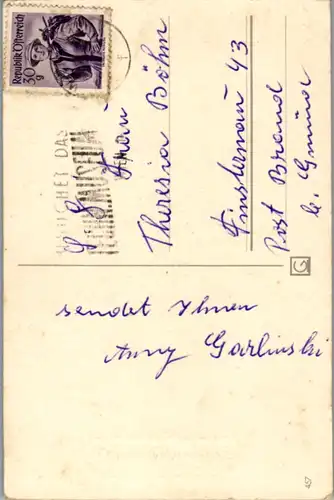 Republik Österreich
30 g
BESUCHET DAS
TECHN. MUSEUM
WIEN
S. g. Frau
Theresia Böhm
Finsternau 43
Post Brand
b. Gmünd
G
sendet Ihnen
Anny Garlinski